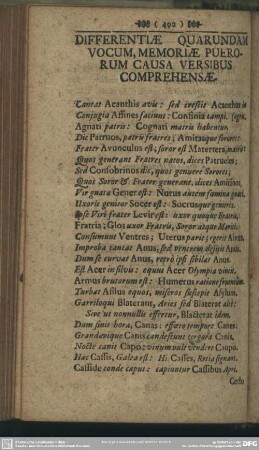 ( 402 )
DIFFERENTIÆ QUARUNDAM
VOCUM, MEMORIÆ PUERO-
RUM CAUSA VERSIBUS
COMPREHENSÆ.
Cantat Acanthis avis: sed crescit Acanthus in
Conjugia Affines faciunt: Confinia campi. [agris,
Agnati patris: Cognati matris habentur.
Dic Patruos, patris fratres; Amitasque sorores:
Frater Avunculus est; soror est Matertera, matris
Quos generant Fratres natos, dices Patrueles;
Sed Consobrinos dic, quos genuere Sorores;
Quos Soror & Frater generant, dices Amitinos,
Vir gnata Gener est: Nurus autem femina nati,
Uxoris genitor Socer est: Socrusque genitrix.
Ipse Viri frater Levir est: uxor quoque fratris,
Fratria: Glos uxor Fratris, Soror atque Mariti.
Consumunt Ventres; Uterus parit; egerit Alvus.
Improba cantat Anus, sed ventrem dejicit Anus.
Dum se curvat Anus, retrò ipsi sibilat Anus.
Est Acer in silvis: equus Acer Olympia vincit.
Armus brutorum est: Humerus ratione fruentum.
Turbat Asilus equos, miseros suscipit Asylum.
Garriloqui Blaterant, Aries sed Blaterat alte:
Sive ut nonnullis effertur, Blacterat idem.
Dum sinis hora, Canas: effœto tempore Canes.
Grandævique Canis candescunt tergora Canis,
Nocte canit Capo: vinum vult vendere Caupo.
Hæc Cassis, Galea est: Hi Casses, Retia signant.
Casside conde caput: capiuntur Cassibus Apri.